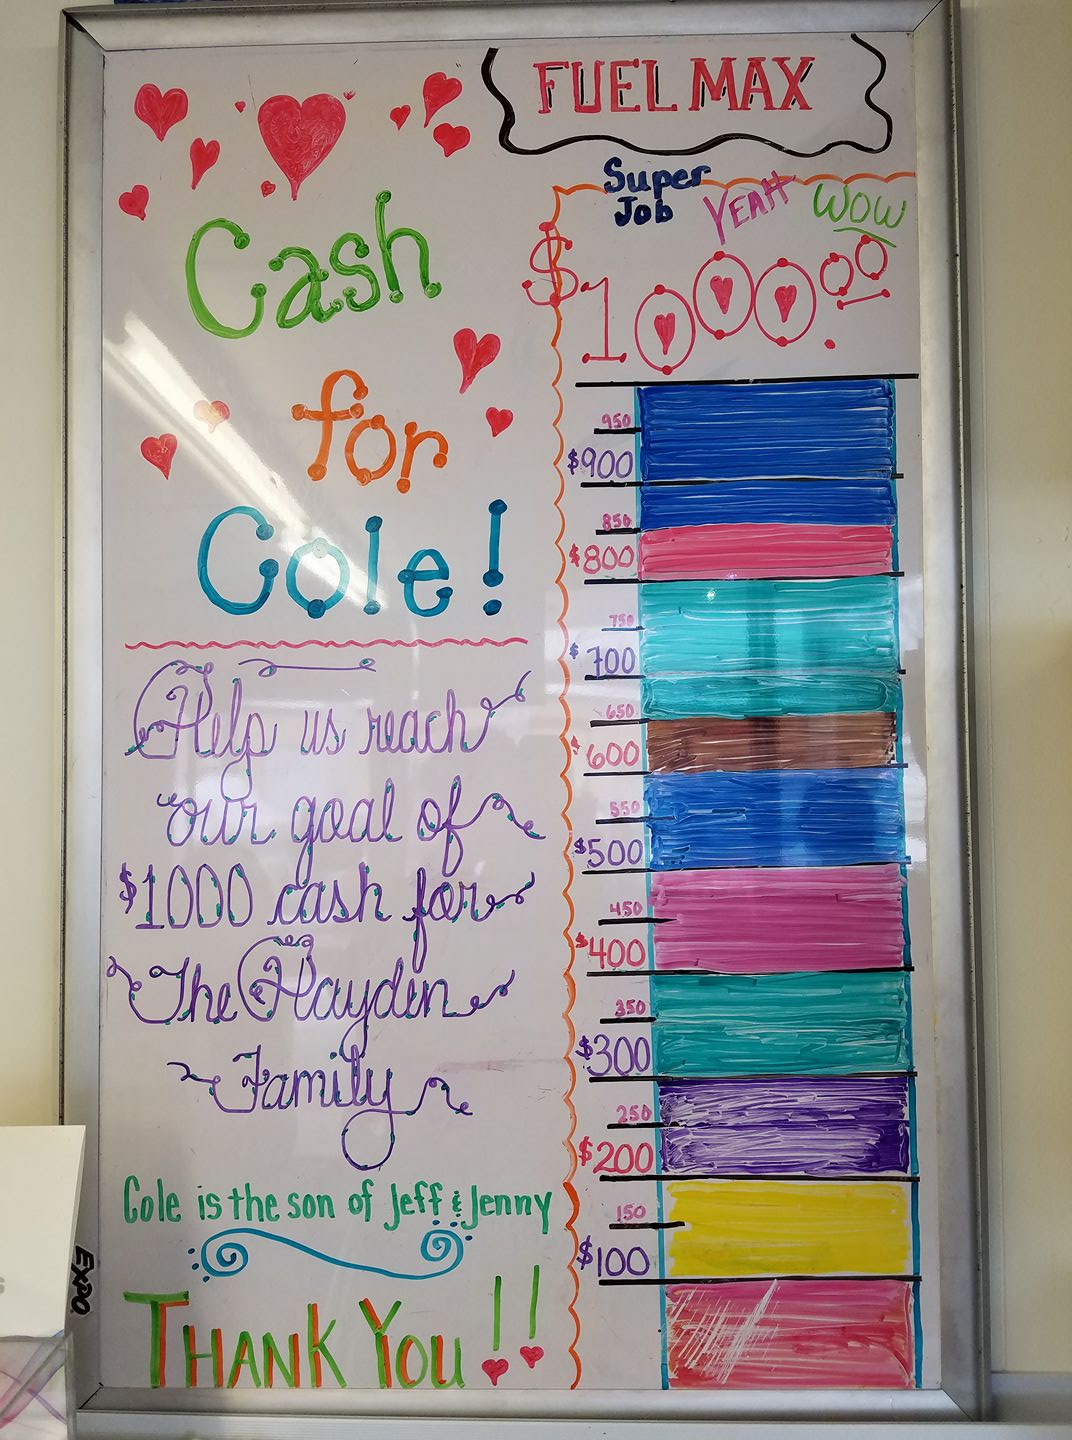 FUEL MAX
Cash
for
Cole!
Help us reach
our goal of
$1000 cash for
The Hayden
Family
Cole is the son of Jeff & Jenny
THANK YOU!!
Super
Job
YEAH
WOW
$1000.00
950
$900
850
$800
750
$700
650
$600
550
$500
450
$400
350
$300
250
$200
150
$100
EXPO